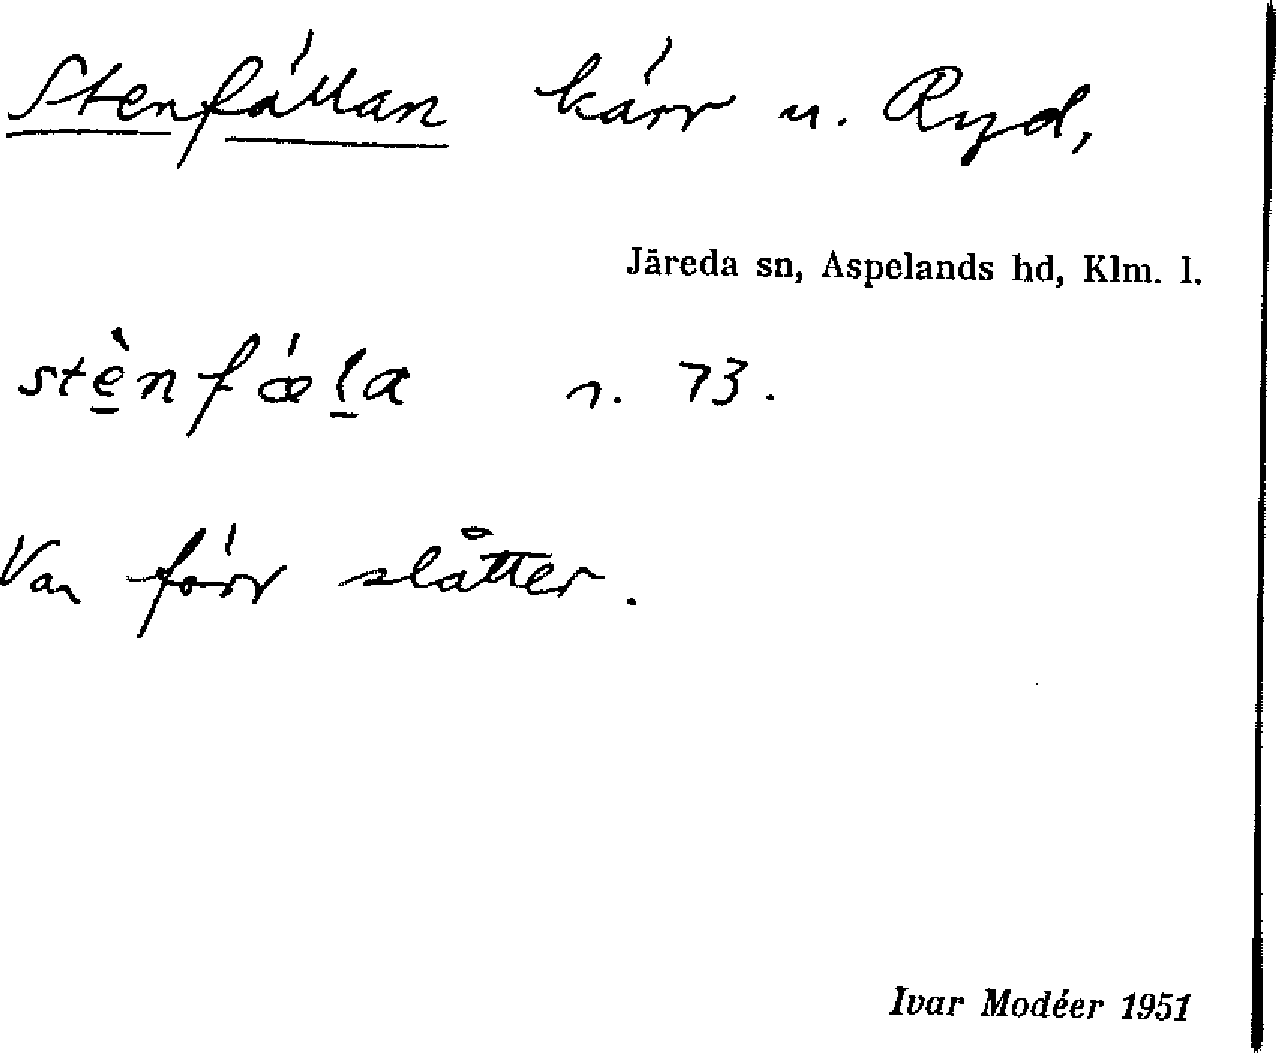 Stenfällan kärr u. Ryd,
Järeda sn, Aspelands hd, Klm. l.
stènfæ̀la r. 73.
Var förr slåtter.
Ivar Modéer 1951